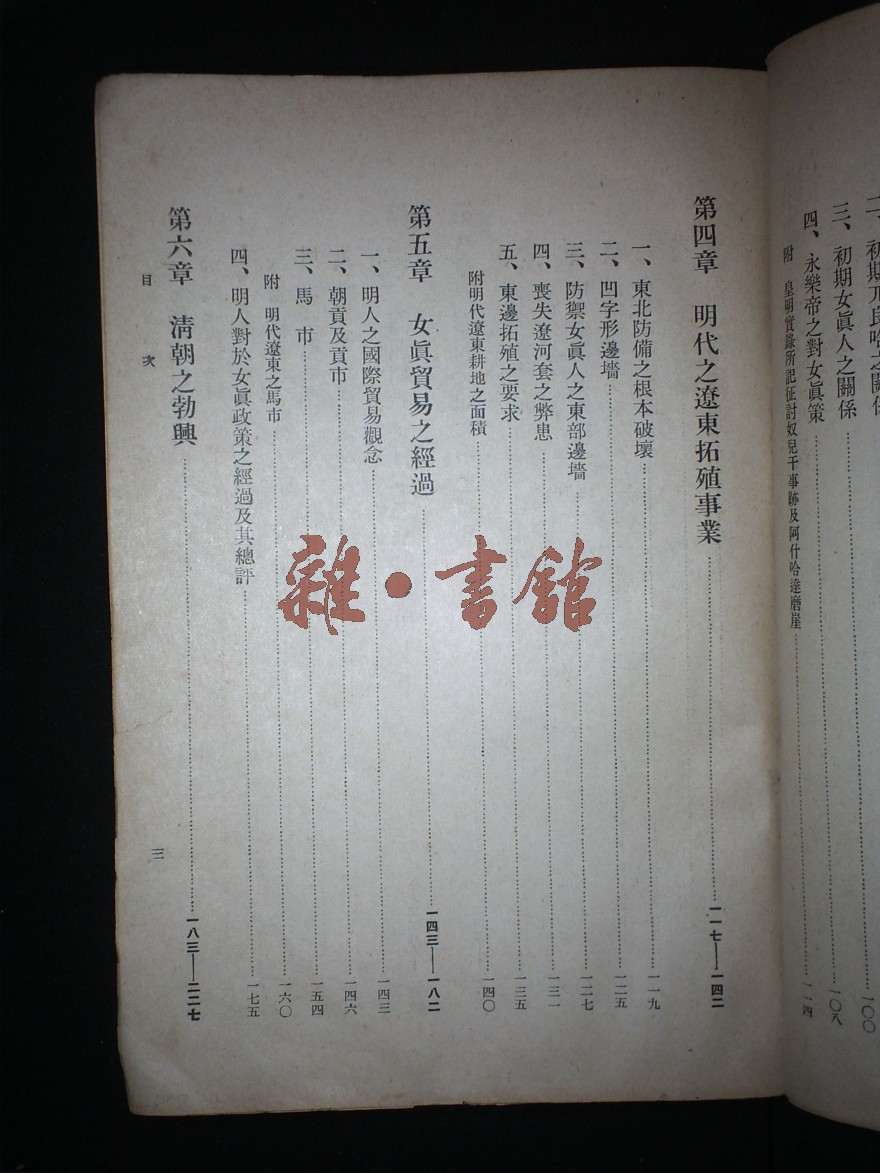 三、初期女眞人之關係
一〇〇
四、永樂帝之對女眞策
一〇八
附 皇明實錄所記征討奴兒干事跡及阿什哈達磨崖
一一四
第四章 明代之遼東拓殖事業
一一七—一四二
一、東北防備之根本破壞
一一九
二、凹字形邊墻
一二五
三、防禦女眞人之東部邊墻
一二七
四、喪失遼河套之弊患
一三一
五、東邊拓殖之要求
一三五
附明代遼東耕地之面積
一四〇
第五章 女眞貿易之經過
一四三—一八二
一、明人之國際貿易觀念
一四三
二、朝貢及貢市
一四六
三、馬市
一五四
附 明代遼東之馬市
一六〇
四、明人對於女眞政策之經過及其總評
一七五
第六章 淸朝之勃興
一八三—二二七
目次
三
雜·書館